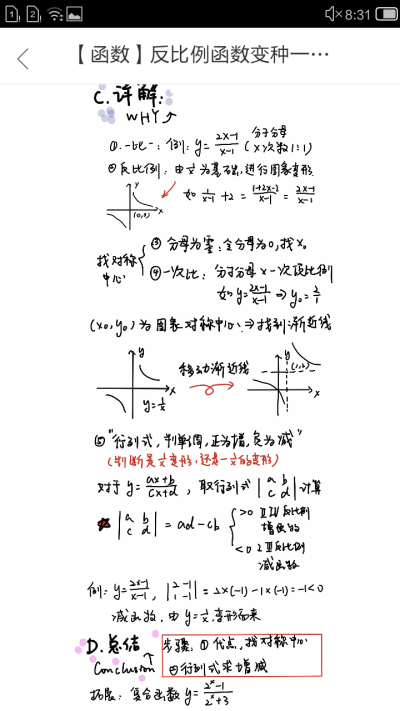 1 2 8:31
【函数】反比例函数变种一…
C.详解:
WHY
①.一比一: 例: y=(2x-1)/(x-1) (分子分母x次数1:1)
②反比例: 由1/x为基础,进行图象变形
如 1/(x-1)+2=(1+2x-2)/(x-1)=(2x-1)/(x-1)
y x (0,0)
找对称中心
③分母为零: 令分母为0,找x₀
④一次比: 分子分母x一次项比例
如y=(2x-1)/(x-1) ⇒ y₀=2/1
(x₀,y₀)为图象对称中心⇒找到渐近线
y x y=1/x 移动渐近线 y (1,2) x
⑤"行列式,判单调,正为增,负为减"
(判断是1/x变形,还是-1/x的变形)
对于 y=(ax+b)/(cx+d), 取行列式 |a b c d| 计算
|a b c d| = ad-cb
>0 II IV 反比例 增函数
<0 I III 反比例 减函数
例: y=(2x-1)/(x-1), |2 -1 1 -1| = 2×(-1)-1×(-1)=-1<0
减函数,由y=1/x变形而来
D.总结 步骤: ①代点,找对称中心
Conclusion ②行列式求增减
拓展: 复合函数 y=(2ˣ-1)/(2ˣ+3)